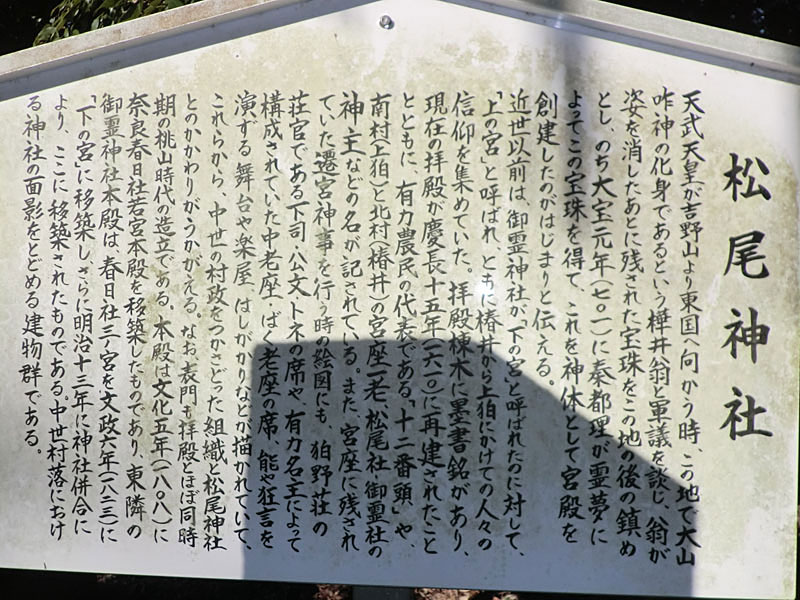 松尾神社
天武天皇が吉野山より東国へ向かう時、この地で大山
咋神の化身であるという樺井翁と軍議を談じ、翁が
姿を消したあとに残された宝珠をこの地の後の鎮め
とし、のち大宝元年(七〇一)に秦都理が霊夢に
よってこの宝珠を得て、これを神体として宮殿を
創建したのがはじまりと伝える。
近世以前は、御霊神社が「下の宮」と呼ばれたのに対して、
「上の宮」と呼ばれ、ともに椿井から上狛にかけての人々の
信仰を集めていた。拝殿棟木に墨書銘があり、
現在の拝殿が慶長十五年(一六一〇)に再建されたこと
とともに、有力農民の代表である「十二番頭」や、
南村(上狛)と北村(椿井)の宮座一老、松尾社・御霊社の
神主などの名が記されている。また、宮座に残され
ていた遷宮神事を行う時の絵図にも、狛野荘の
荘官である下司・公文・トネの席や、有力名主によって
構成されていた中老座・ばく老座の席、能や狂言を
演ずる舞台や楽屋、はしがかりなどが描かれていて、
これらから、中世の村政をつかさどった組織と松尾神社
とのかかわりがうかがえる。なお、表門も拝殿とほぼ同時
期の桃山時代の造立である。本殿は文化五年(一八〇八)に
奈良春日社若宮本殿を移築したものであり、東隣の
御霊神社本殿は、春日社三ノ宮を文政六年(一八二三)に
「下の宮」に移築し、さらに明治十三年に神社併合に
より、ここに移築されたものである。中世村落におけ
る神社の面影をとどめる建物群である。